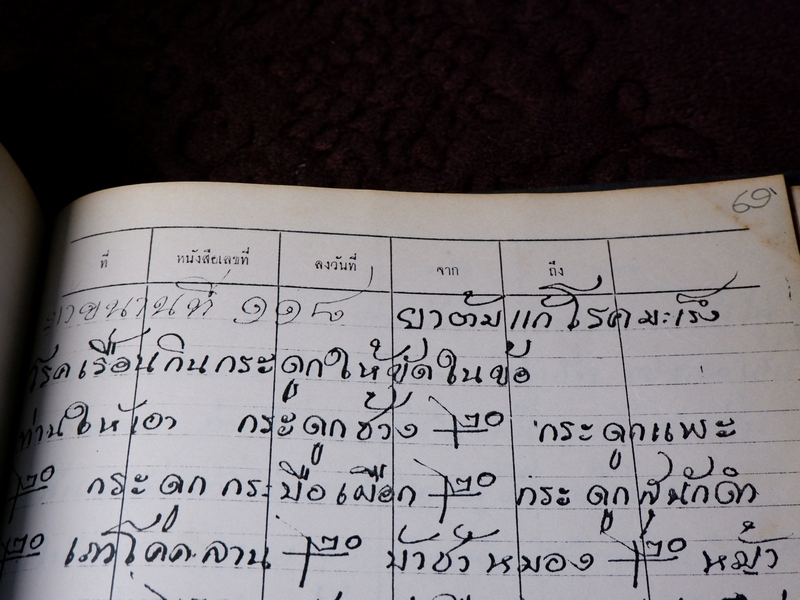 69
ที่ หนังสือเลขที่ ลงวันที่ จาก ถึง
ยาขนานที่ ๑๑๘ ยาต้มแก้โรคมะเร็ง
โรคเรื้อนกินกระดูกให้ขัดในข้อ
ท่านให้เอา กระดูกช้าง ๒๐ กระดูกแพะ
๒๐ กระดูกกระบือเผือก ๒๐ กระดูกสุนักดำ
๒๐ เถาโคคลาน ๒๐ ข้าวเย็น